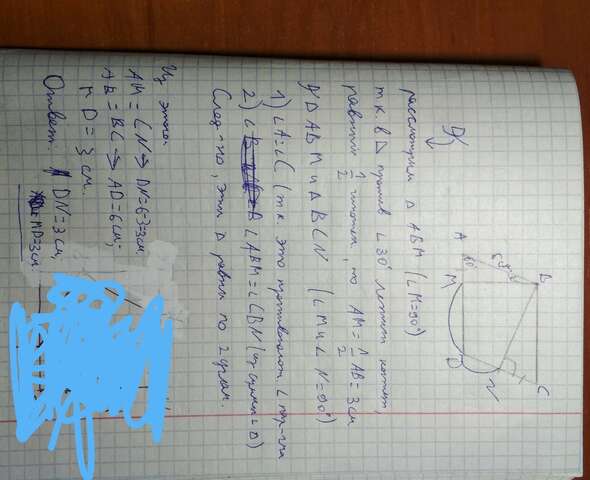 D)
A
60°
6 см
B
M
D
N
C
рассмотрим △ ABM (∠M=90°)
т.к. в △ против ∠30° лежит катет,
равный 1/2 гипотен, то AM = 1/2 AB = 3 см
у △ ABM и △ BCN (∠M и ∠N=90°)
1) ∠A=∠C (т.к это противополож. ∠ пар-гма
2) ∠ ∠ABM=∠CBN (из суммы ∠ △)
След-но, эти △ равны по 2 углам.
Из этого:
AM = CN → DN=6-3=3см.
AB = BC → AD=6см;
MD = 3 см.
Ответ: DN=3 см,
MD=3см.